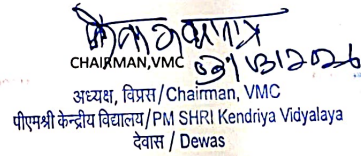 CHAIRMAN,VMC
अध्यक्ष, विप्रस/Chairman, VMC
पीएमश्री केन्द्रीय विद्यालय/PM SHRI Kendriya Vidyalaya
देवास / Dewas